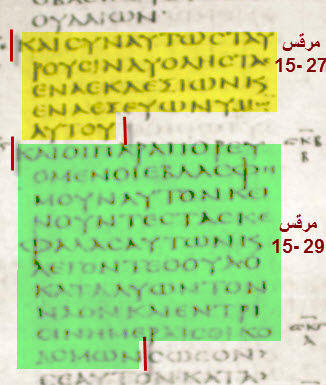 ΟΥΔΑΙΩΝ·
ΚΑΙCΥΝΑΥΤΩCΤΑΥ
ΡΟΥCΙΝΔΥΟΛΗCΤΑ
ΕΝΑΕΚΔΕΞΙΩΝΚ
ΕΝΑΕΞΕΥΩΝΥΜΩ
ΑΥΤΟΥ
مرقس
15- 27
ΚΑΙΟΙΠΑΡΑΠΟΡΕΥ
ΟΜΕΝΟΙΕΒΛΑCΦΗ
ΜΟΥΝΑΥΤΟΝΚΕΙ
ΝΟΥΝΤΕCΤΑCΚΕ
ΦΑΛΑCΑΥΤΩΝΚ
ΛΕΓΟΝΤΕCΟΥΑΟ
ΚΑΤΑΛΥΩΝΤΟΝ
ΝΑΟΝΚΑΙΕΝΤΡΙ
CΙΝΗΜΕΡΑΙCΟΙΚΟ
ΔΟΜΩΝCΩCΟΝ
CΕΑΥΤΟΝΚΑΤΑ
مرقس
15- 29